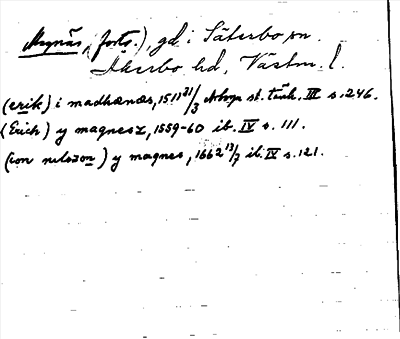 Magnäs, (forts.), gd i Säterbo sn.
Åkerbo hd, Västm. l.
(erik) i madhænæs, 1511 21/3 Arboga st. tänk. III s. 246.
(Erich) y magnesz, 1559-60 ib. IV s. 111.
(ion nelsson) y magnes, 1662 13/7 ib. IV s. 121.